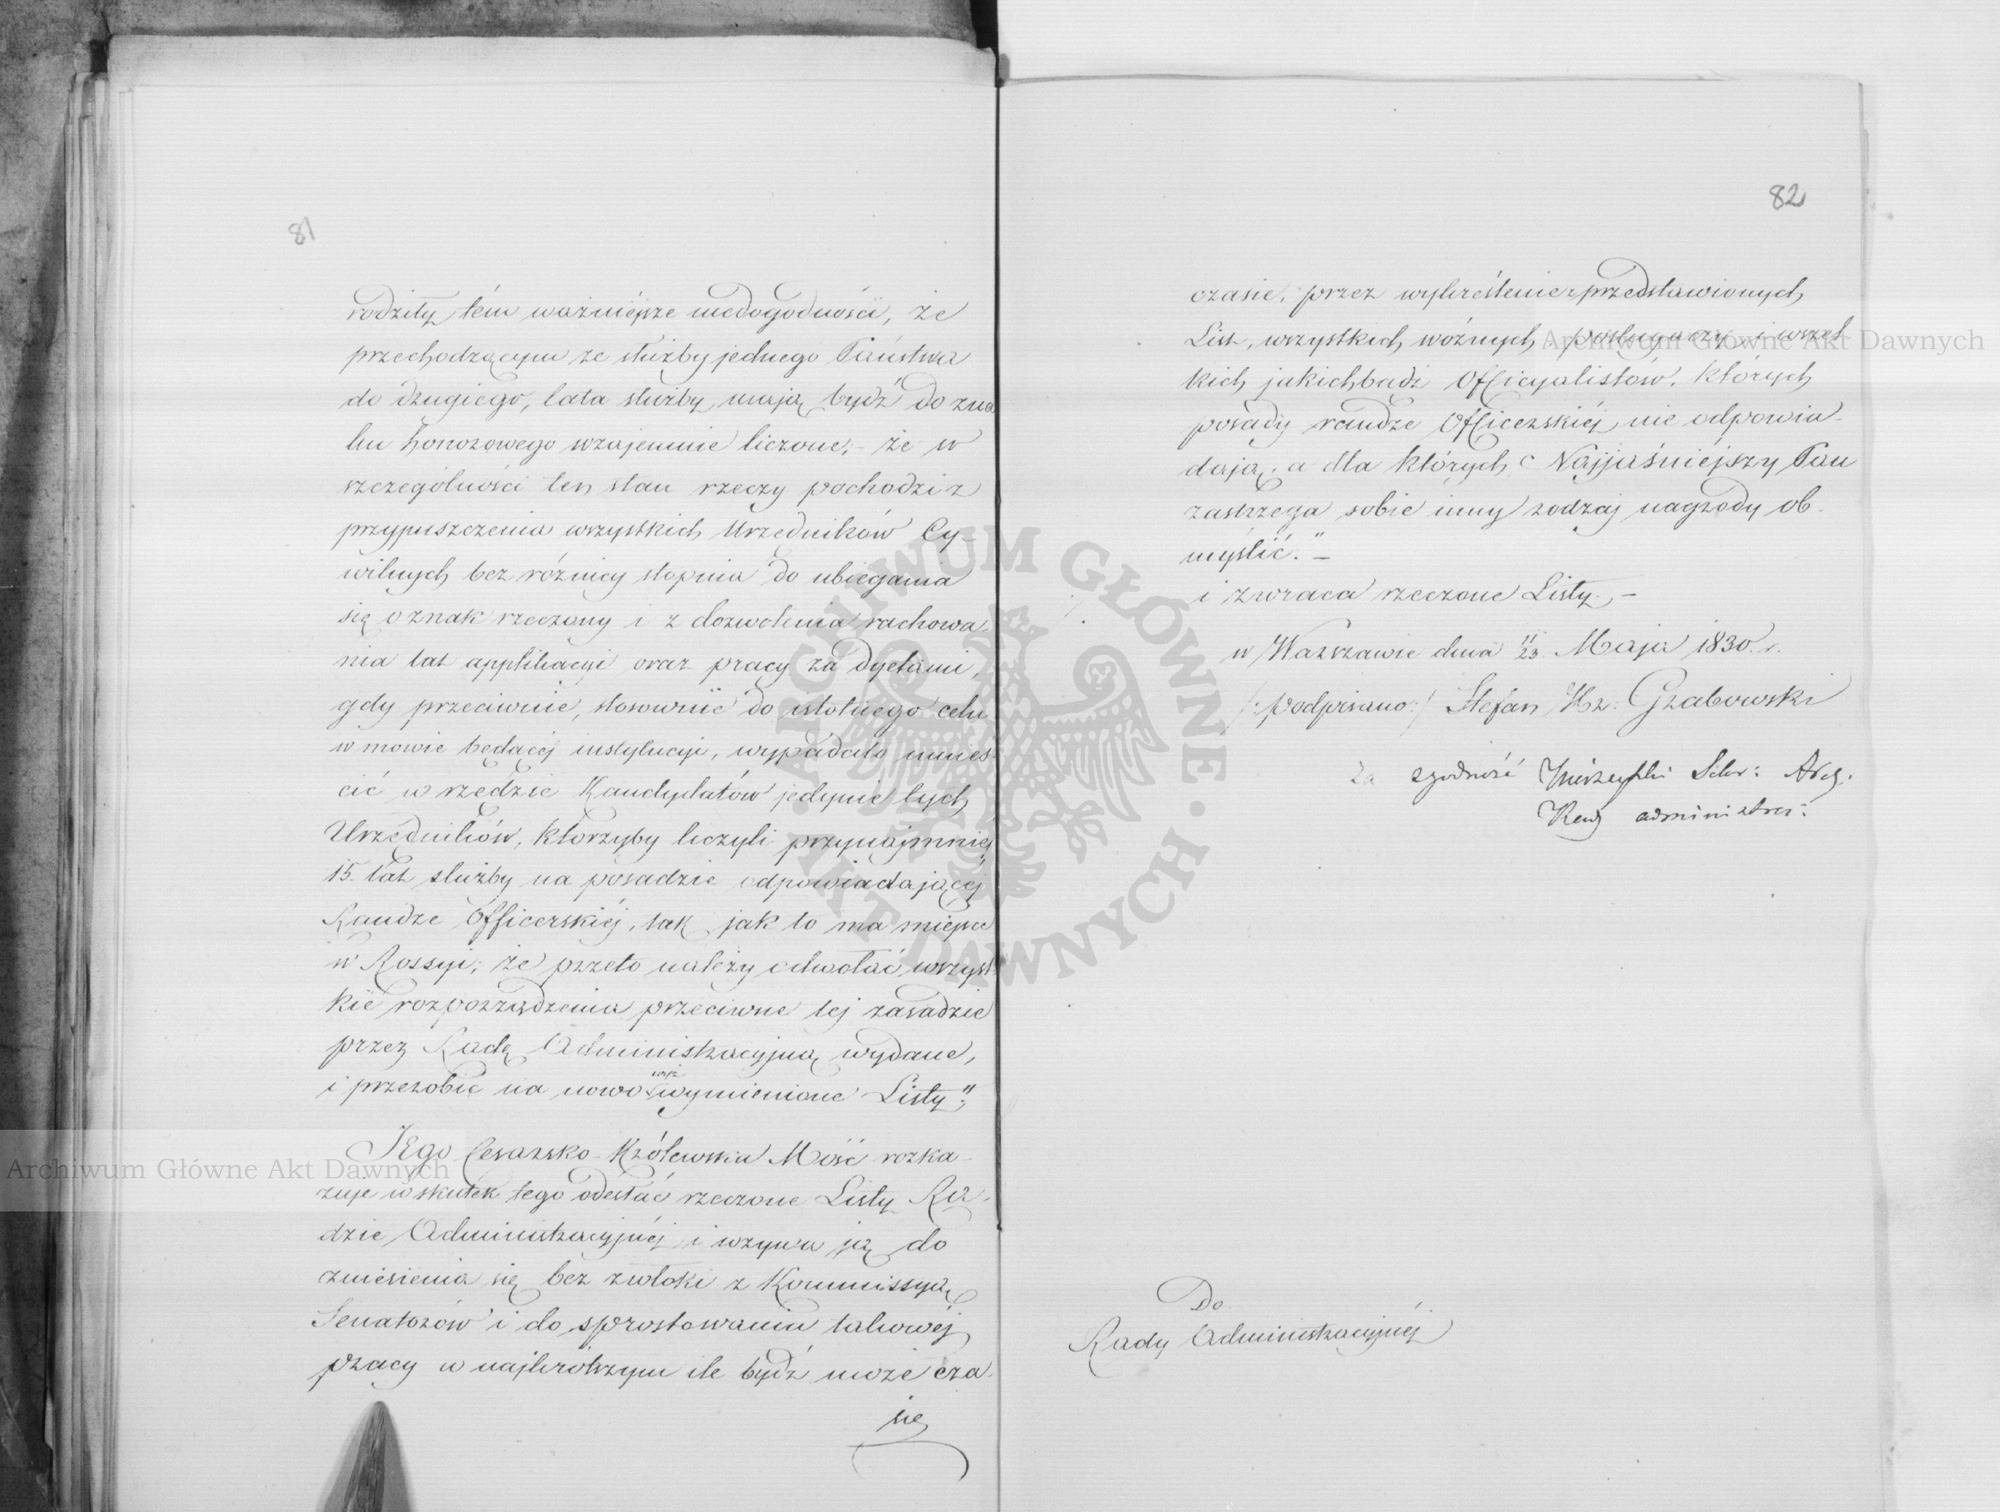 81
rodziły tém ważniéjsze niedogodności, że
przechodzącym ze służby jednego Państwa
do drugiego, lata służby mają bydź do zna
ku honorowego wzajemnie liczone; – że w
szczególności ten stan rzeczy pochodzi z
przypuszczenia wszystkich Urzędników Cy-
wilnych bez różnicy stopnia do ubiegania
się o znak rzeczony i z dozwolenia rachowa-
nia lat applikacyi oraz pracy za dyetami,
gdy przeciwnie, stosownie do istotnego celu
w mowie będącéj instytucyi, wypadało umieś
cić w rzędzie Kandydatów jedynie tych
Urzędników, którzyby liczyli przynajmniéj
15. lat służby na posadzie odpowiadającéj
Randze Officerskiéj, tak jak to ma miejsce
w Rossyi; że przeto należy odwołać wszyst
kie rozporządzenia przeciwne téj zasadzie
przez Radę Administracyjną wydane,
i przerobić na nowo wyż wymienione Listy";
JEgo Cesarsko-Królewska Mość rozka-
zuje w skutek tego odesłać rzeczone Listy Ra-
dzie Administracyjnéj i wzywa ją do
zniesienia się bez zwłoki z Kommissyą
Senatorów i do sprostowania takowéj
pracy w najkrótszym ile bydź może cza-
sie
82
czasie, przez wykreślenie z przedstawionych
List, wszystkich woźnych, posługaczy i wszel
kich jakichbądź Officyalistów, których
posady randze Officerskiéj nie odpowia-
dają, a dla których Najjaśniéjszy Pan
zastrzega sobie inny rodzaj nagrody ob-
myślić." –
i zwraca rzeczone Listy. –
w Warszawie dnia 11/23 Maja 1830. r.
/:podpisano:/ Stefan Hr: Grabowski
Za zgodność Sekr: Arch.
Rady administrac:
Do
Rady Administracyjnéj
Archiwum Główne Akt Dawnych
Archiwum Główne Akt Dawnych
ARCHIWUM GŁÓWNE · AKT DAWNYCH ·